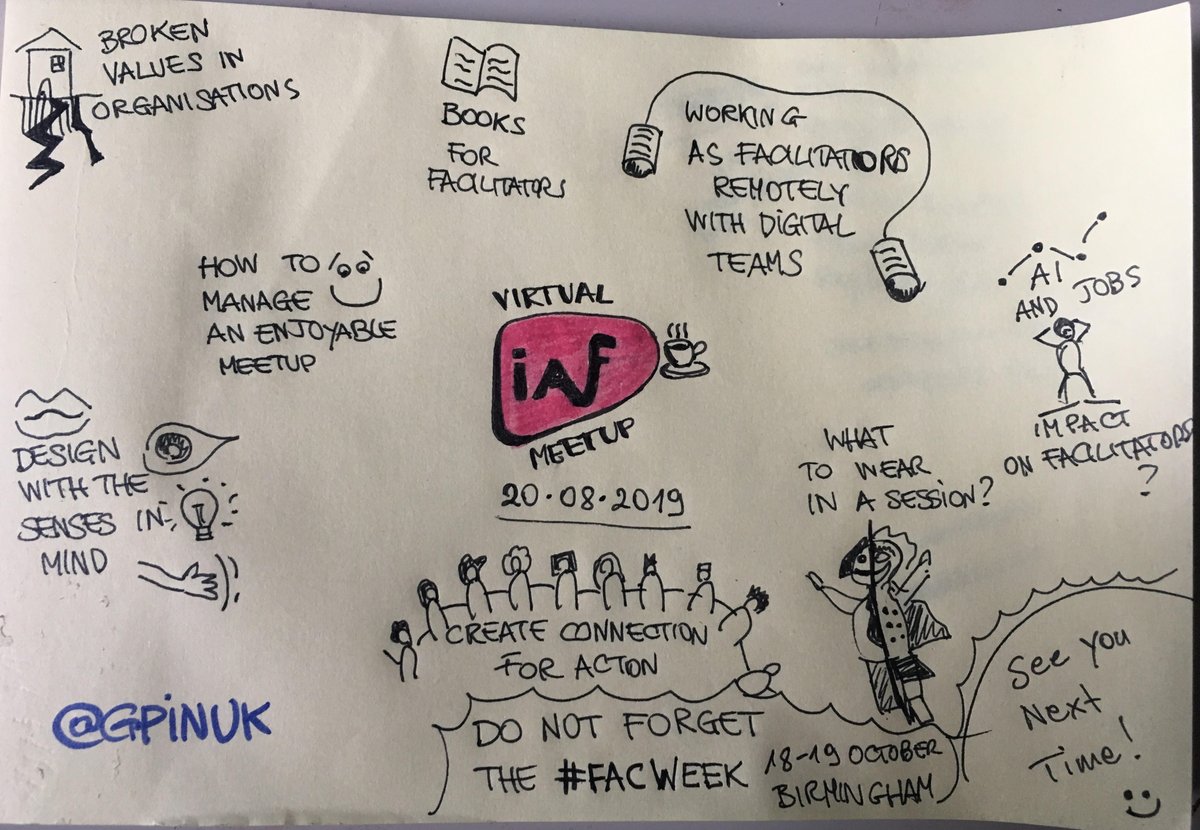 BROKEN
VALUES IN
ORGANISATIONS
BOOKS
FOR
FACILITATORS
WORKING
AS FACILITATORS
REMOTELY
WITH DIGITAL
TEAMS
HOW TO
MANAGE
AN ENJOYABLE
MEETUP
VIRTUAL
iAF
MEETUP
20.08.2019
AI
AND JOBS
IMPACT
ON FACILITATORS
?
DESIGN
WITH THE
SENSES IN
MIND
WHAT
TO WEAR
IN A SESSION?
CREATE CONNECTION
FOR ACTION
@GPiNUK
DO NOT FORGET
THE #FACWEEK
18-19 OCTOBER
BIRMINGHAM
See you
Next
Time!